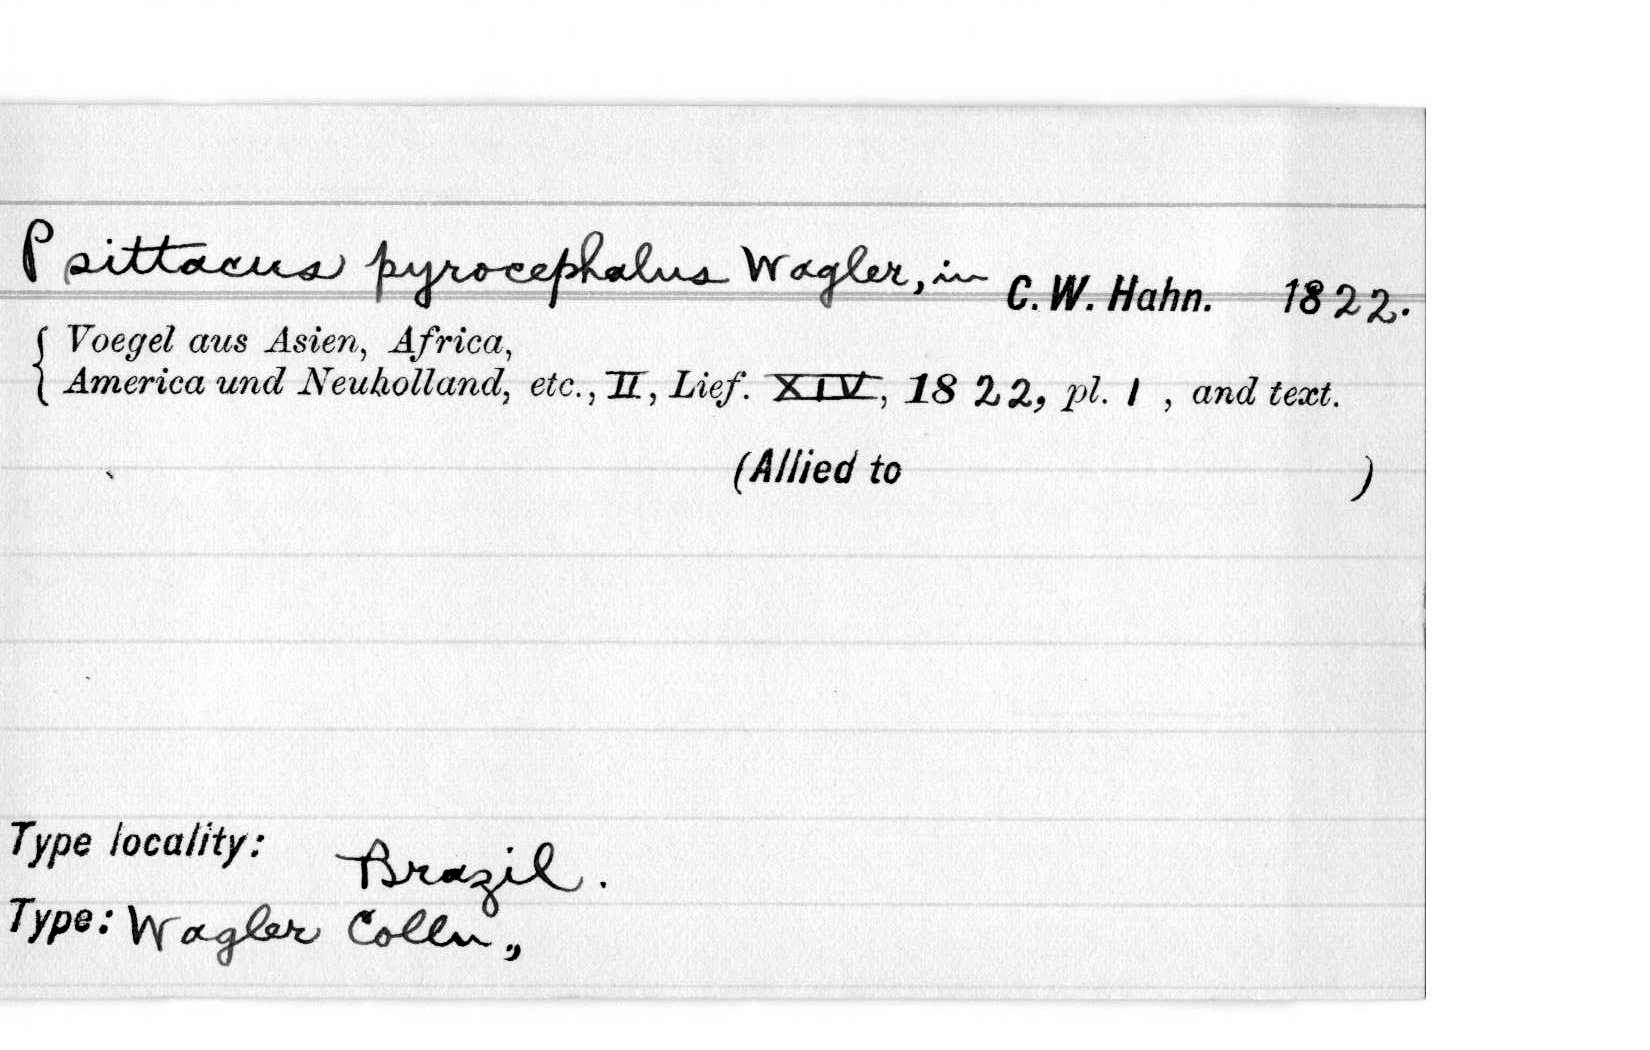 Psittacus pyrocephalus Wagler, in C. W. Hahn. 1822.
Voegel aus Asien, Africa,
America und Neuholland, etc., II, Lief. XIV, 1822, pl. 1 , and text.
(Allied to )
Type locality: Brazil.
Type: Wagler Colln.,